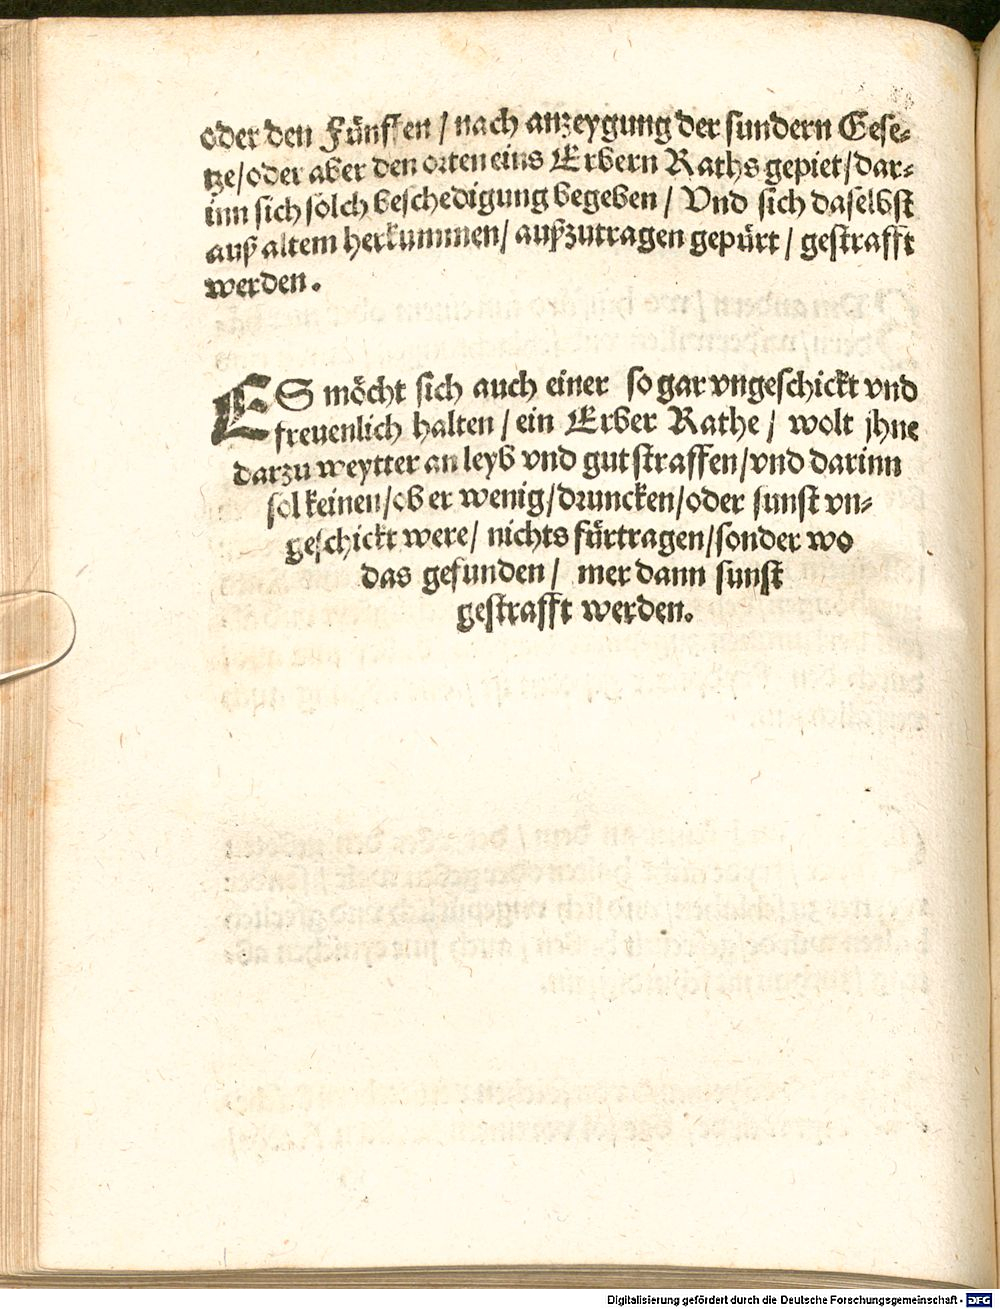 oder den Fünffen / nach anzeygung der sundern Gese⸗
tze / oder aber den orten eins Erbern Raths gepiet / dar⸗
inn sich solch beschedigung begeben / Vnd sich daselbst
auß altem herkummen / außzutragen gepürt / gestrafft
werden.
ES möcht sich auch einer so gar vngeschickt vnd
freuenlich halten / ein Erber Rathe / wolt jhne
darzu weytter an leyb vnd gut straffen / vnd darinn
sol keinen / ob er wenig / druncken / oder sunst vn⸗
geschickt were / nichts fürtragen / sonder wo
das gefunden / mer dann sunst
gestrafft werden.
Digitalisierung gefördert durch die Deutsche Forschungsgemeinschaft - DFG